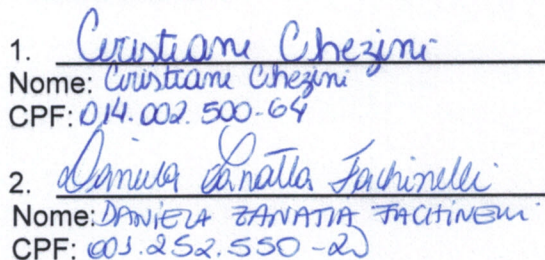 1. Cristiane Chezini
Nome: Cristiane Chezini
CPF: 014.002.500-64
2. Daniela Zanatta Fachinelli
Nome: DANIELA ZANATTA FACHINELLI
CPF: 003.252.550-20